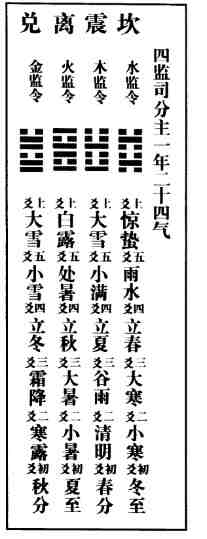 四监司分主一年二十四气
坎
水监令
上爻惊蛰五爻雨水四爻立春三爻大寒二爻小寒初爻冬至
震
木监令
上爻大雪五爻小满四爻立夏三爻谷雨二爻清明初爻春分
离
火监令
上爻白露五爻处暑四爻立秋三爻大暑二爻小暑初爻夏至
兑
金监令
上爻大雪五爻小雪四爻立冬三爻霜降二爻寒露初爻秋分